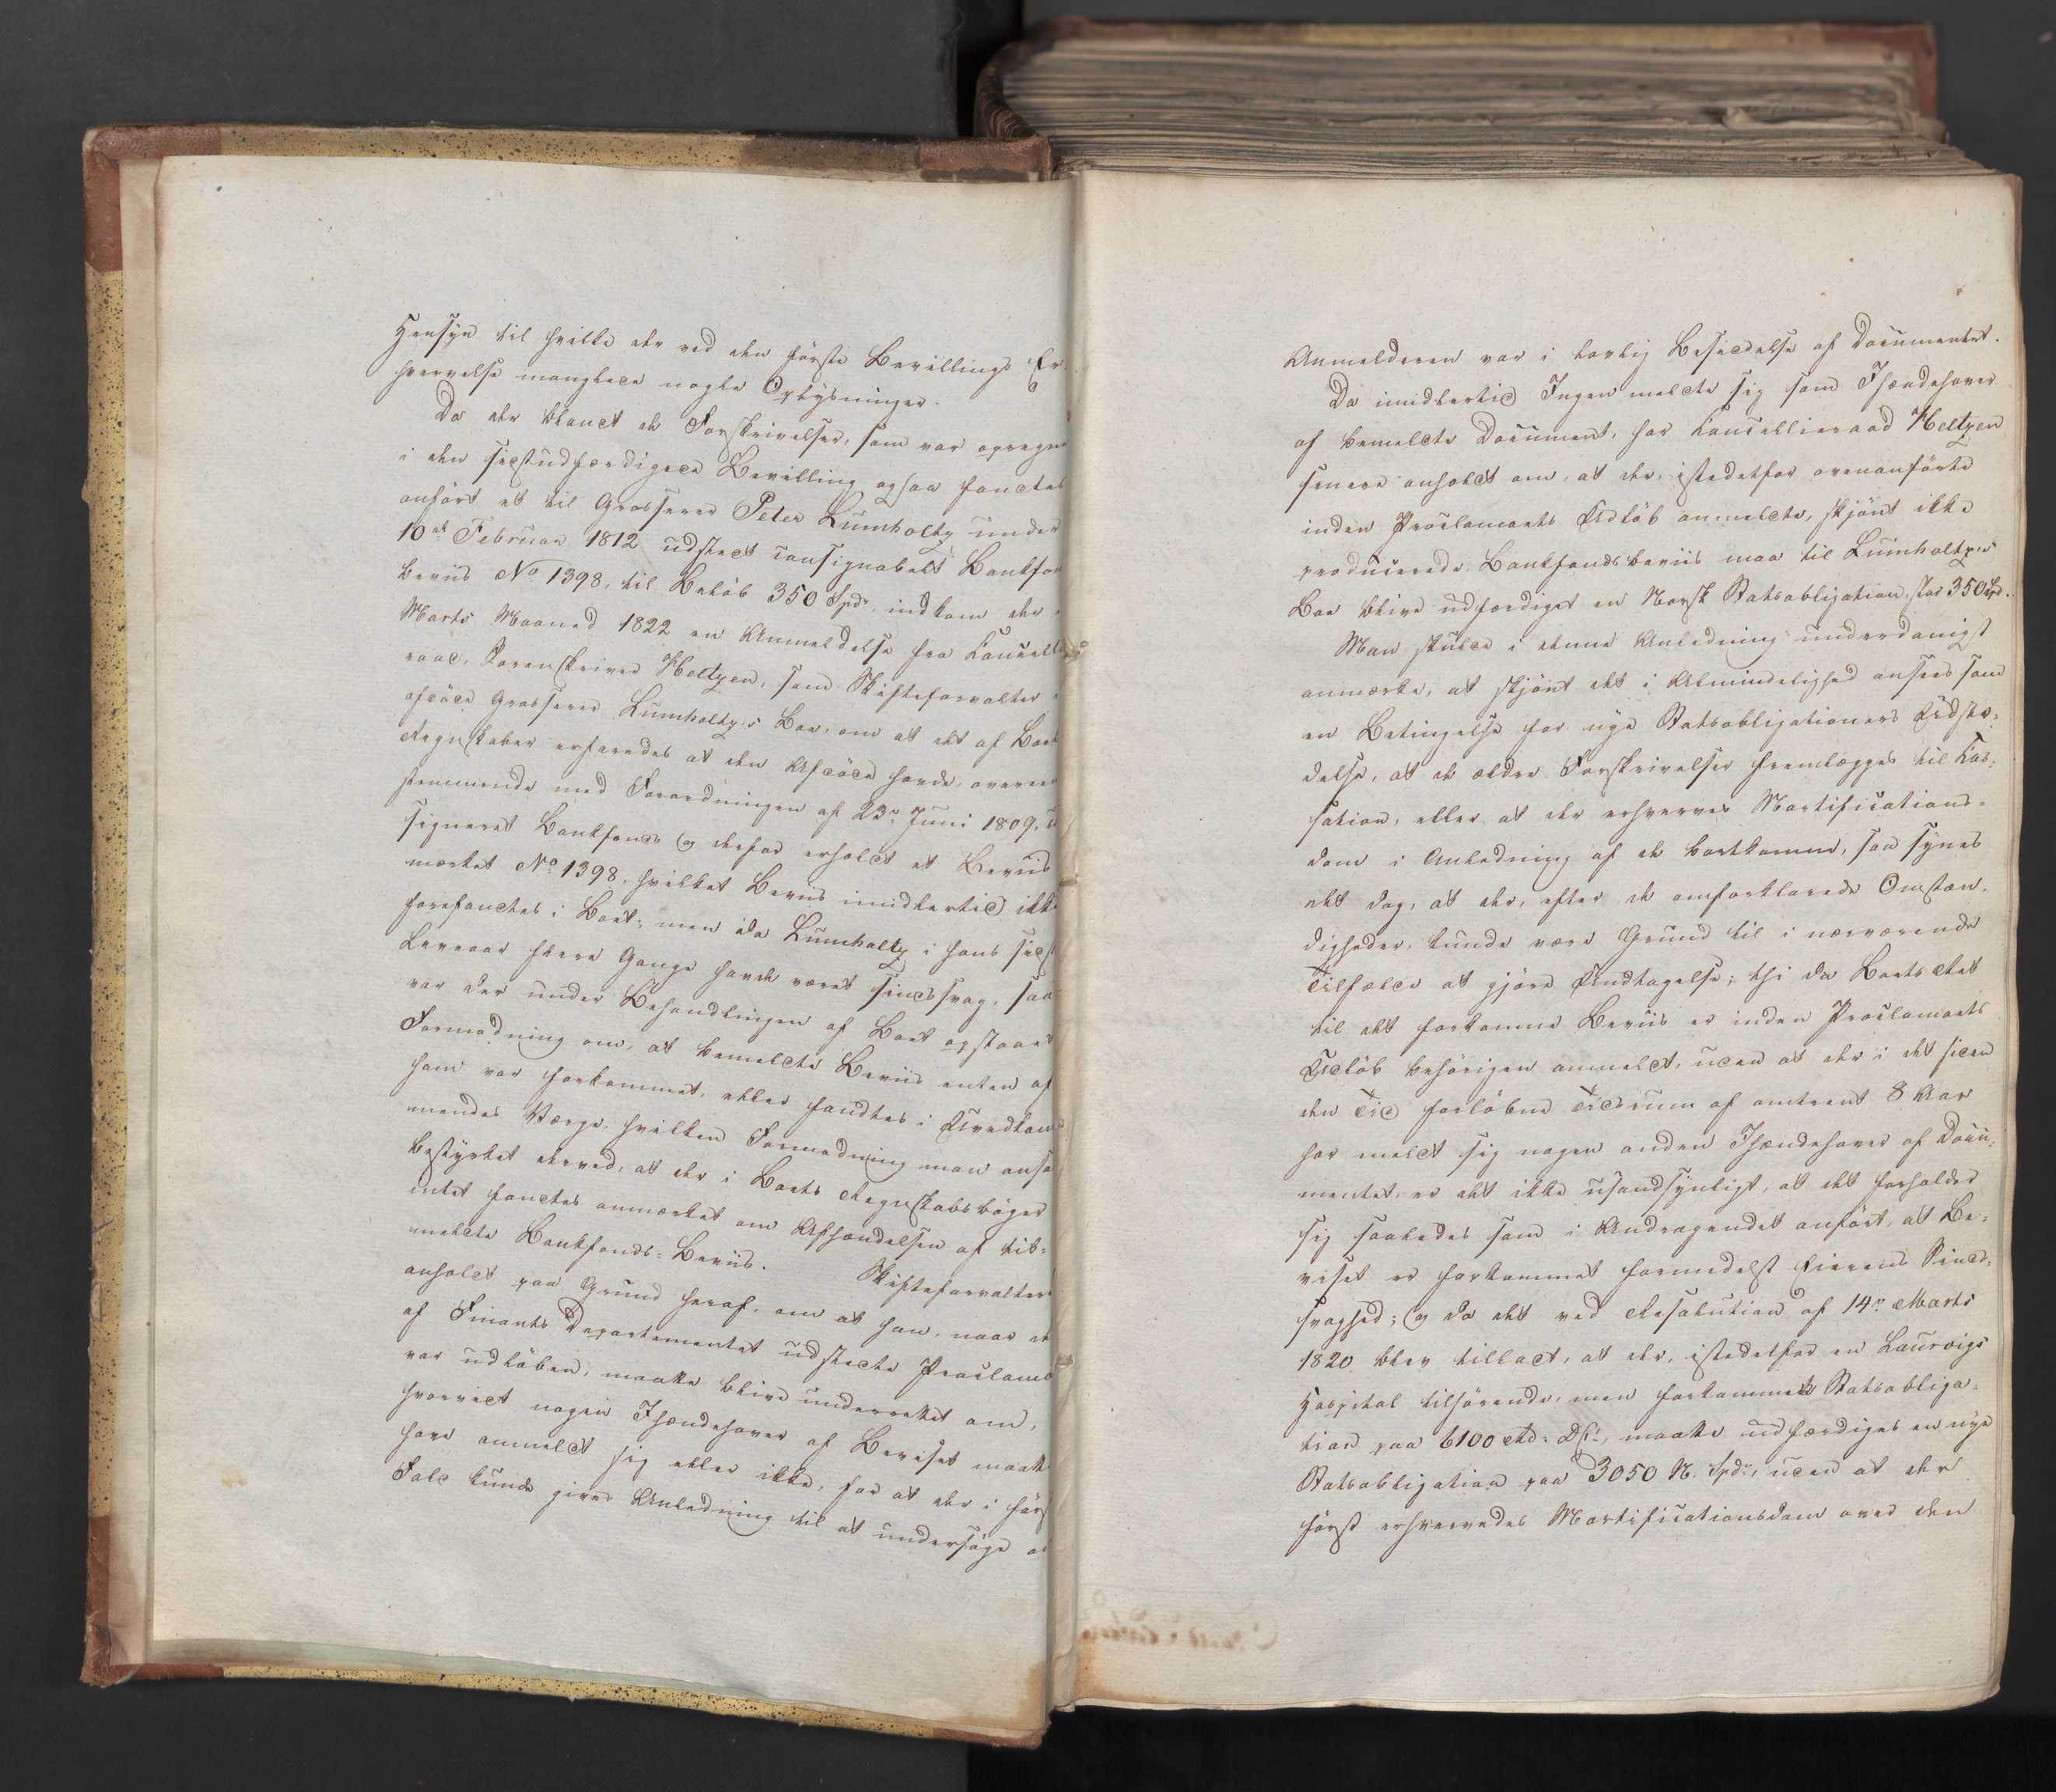 Hensyn til hvilke der ved den første Bevillings Er-
hvervelse manglede nogle Oplysninger.
Da der blandt de Forskrivelser, som var opregne
i den sidstudfærdigede Bevilling ogsaa fandtes
anført et til Grosserer Peter Lumholtz under
10de Februar 1812 udstedt consignabelt Bankfon
beviis No 1398, til Beløb 350 Spdr, indkom der
Marts Maaned 1822 en Anmeldelse fra Cancelli
raad, Sorenskriver Heltzen, som Skifteforvalter
afdøde Grosserer Lumholtz's Boe, om at det af Boets
Regnskaber erfaredes at den Afdøde havde, overeen
stemmende med Forordningen af 23de Juni 1809,
signeret Bankfonds og derfor erholdt et Beviis
mærket No 1398, hvilket Beviis imidlertid ikke
forefandtes i Boet; men da Lumholtz i hans sidst
Leveaar flere Gange havde været sindssvag, saa
var der under Behandlingen af Boet opstaaet
Formodning om, at bemeldte Beviis enten af
ham var forkommet, eller fandtes i Uvedkom
mendes Værge, hvilken Formodning man ansa
bestyrket derved, at der i Boets Regnskabsbøger
intet fandtes anmærket om Afhændelsen af bi-
meldte Bankfonds-Beviis. Skifteforvalter
anholdt paa Grund heraf, om at han, naar de
af Finants Departementet udstedte Proclama
var udløben, maatte blive underrettet om,
hvorvidt nogen Ihændehaver af Beviset maatte
have anmeldt sig eller ikke, for at der i først
Fald kunde gives Anledning til at undersøge o
Anmelderen var i lovlig Besiddelse af Documentet.
Da imidlertid Ingen meldte sig som Ihændehaver
af bemeldte Document, har Cancellieraad Heltzen
senere anholdt om, at der, istedetfor ovenanførte
inden Proclamaets Udløb anmeldte, skjønt ikke
producerede, Bankfondsbeviis maa til Lumholtz's
Boe blive udfærdiget en Norsk Statsobligation, stor 350 Spd.
Man skulde i denne Anledning underdanigst
anmærke, at skjønt det i Almindelighed ansees som
en Betingelse for nye Statsobligationers Udstæ-
delse, at de ældre Forskrivelser fremlægges til Cas-
sation, eller at der erhverves Mortifications-
dom i Anledning af de bortkomne, saa synes
det dog, at der, efter de omforklarede Omstæn-
digheder, kunde være Grund til i nærværende
Tilfælde at gjøre Undtagelse; thi da Boets Ret
til det forkomne Beviis er inden Proclamaets
Udløb behørigen anmeldt, uden at der i det siden
den Tid forløbne Tidsrum af omtrent 8 Aar
har meldt sig nogen anden Ihændehaver af Docu-
mentet, er det ikke usandsynligt, at det forholder
sig saaledes som i Andragendet anført, at Be-
viset er forkommet formedelst Eierens Sinds-
svaghed; og da det ved Resolution af 14de Marts
1820 blev tilladt, at der, istedetfor en Laurvigs
Hospital tilhørende, men forkommet Statsobliga-
tion paa 6100 Rd. DCt, maatte udfærdiges en nye
Statsobligation paa 3050 N. Spdr, uden at der
først erhvervedes Mortificationsdom over den